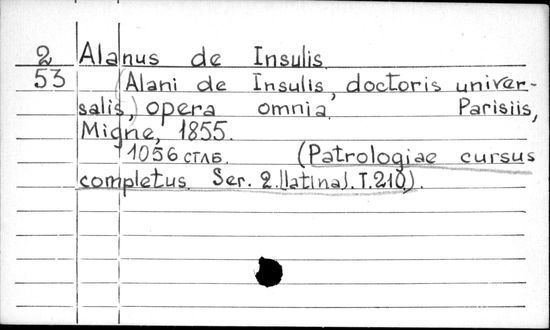 2 Alanus de Insulis
53 (Alani de Insulis, doctoris univer-
salis,) opera omnia. Parisiis,
Migne, 1855.
1056 стлб. (Patrologiae cursus
completus. Ser. 2.[latina]. T.210).